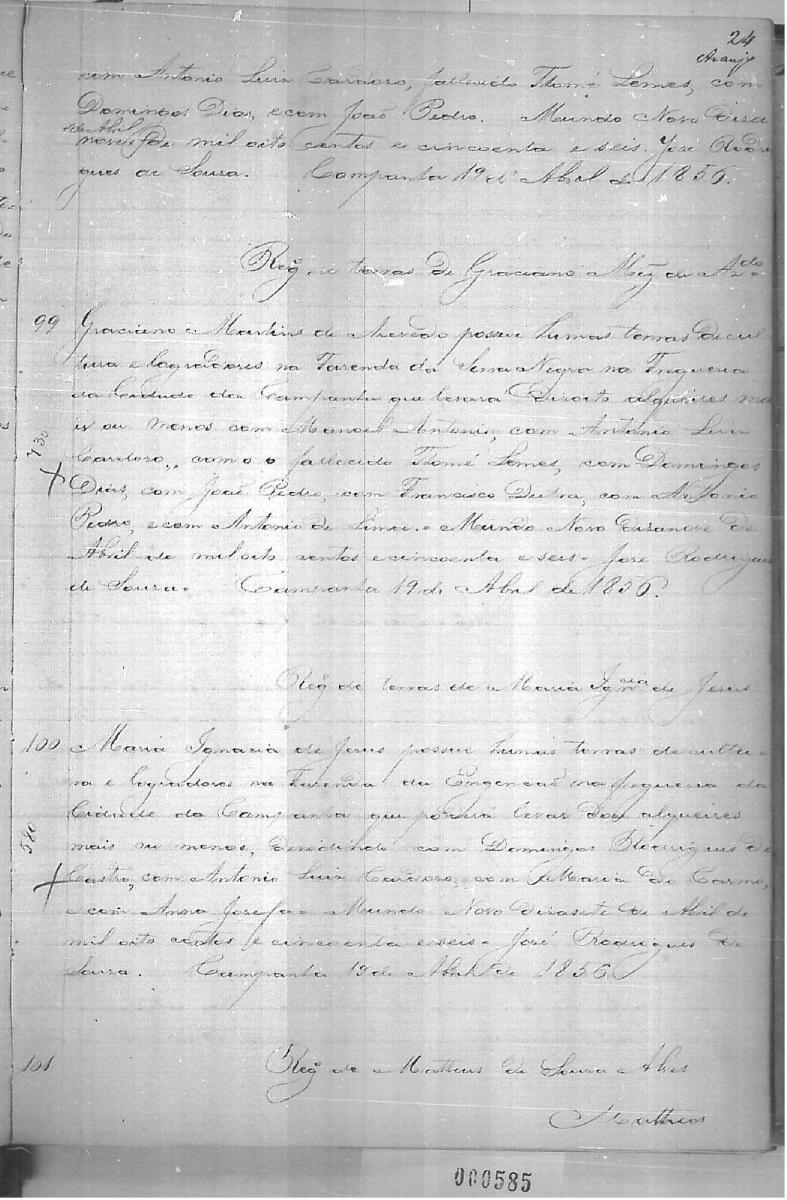 24
Araujo
com Antonio Luiz Cardoso, fallecido Thomé Lemes, com
Domingos Dias, e com João Pedro. Mundo Novo desa
de Abril
nove de mil oito centos e cincoenta e seis. José Rodri
gues de Souza. Campanha 19 d' Abril de 1856.
Regº de terras de Graciano Miz de Azdo
99 Graciano Martins de Azevedo possue humas terras de cul
tura e logradores na Fazenda da Serra Negra na Freguesia
da Cidade da Campanha que levará desoito alqueires ma
is ou menos com Manoel Antonio, com Antonio Luiz
730
Cardoso, com o fallecido Thomé Lemes, com Domingos
Dias, com João Pedro, com Francisco Dutra, com Antonio
Pedro, e com Antonio de Lima. Mundo Novo desanove de
Abril de mil oito centos e cincoenta e seis. José Rodrigues
de Souza. Campanha 19 de Abril de 1856.
Regº de terras de Maria Igncia de Jesus
100 Maria Ignacia de Jesus possue humas terras de cultu
ra e logradores na Fazenda da na freguesia da
Cidade da Campanha que poderá levar dou alqueires
580
mais ou menos, devidindo com Domingos Rodrigues de
Castro, com Antonio Luiz Cardoso, com Maria do Carmo,
e com Anna Josefa. Mundo Novo desasete de Abril de
mil oito centos e cincoenta e seis. José Rodrigues de
Souza. Campanha 19 de Abril de 1856.
101 Regº de Matheus de Souza Alves
Matheos
000585